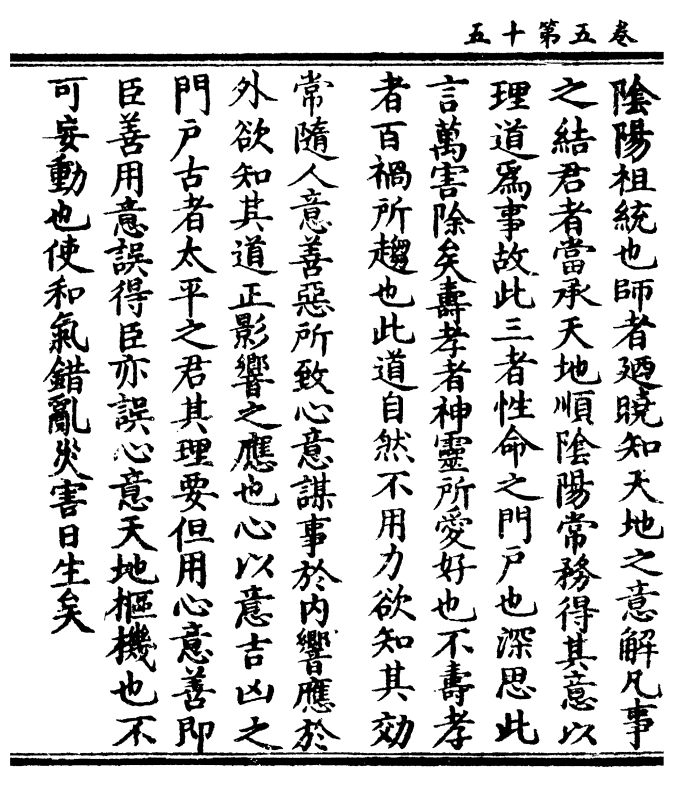 卷五第十五
陰陽祖統也師者廼曉知天地之意解凡事
之結君者當承天地順陰陽常務得其意以
理道爲事故此三者性命之門戶也深思此
言萬害除矣壽孝者神靈所愛好也不壽孝
者百禍所趨也此道自然不用力欲知其効
常隨人意善惡所致心意謀事於内響應於
外欲知其道正影響之應也心以意吉凶之
門戶古者太平之君其理要但用心意善即
臣善用意誤得臣亦誤心意天地樞機也不
可妄動也使和氣錯亂災害日生矣